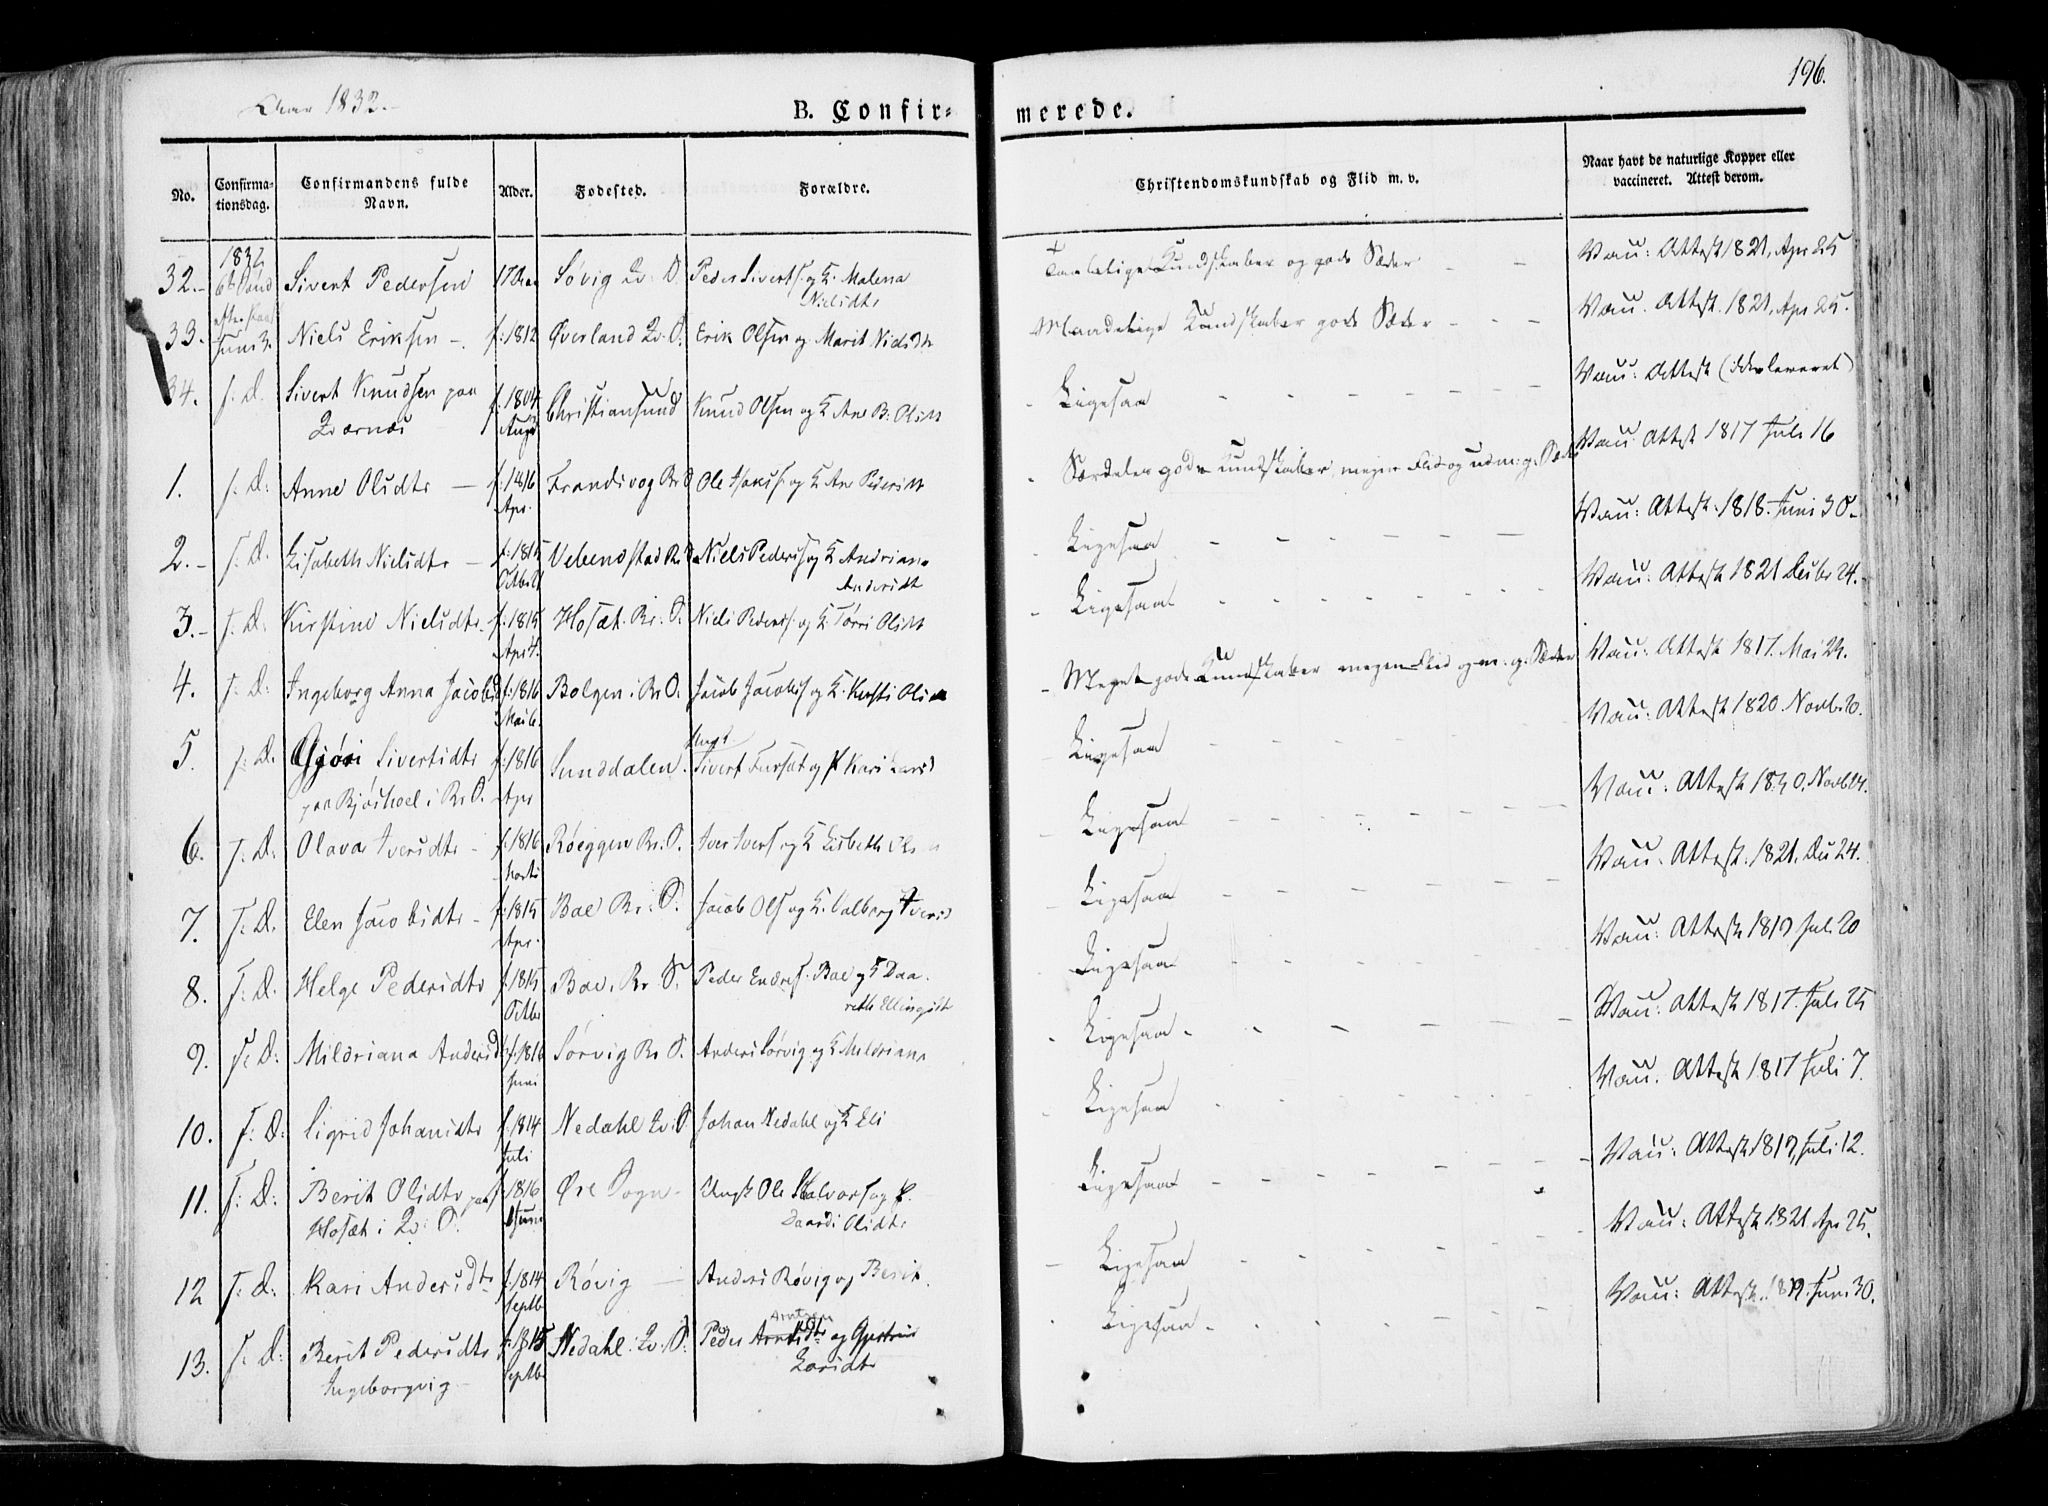 Aar 1832.
196.
B. Confir-
merede.
No.
Confirma-
tionsdag.
Confirmandens fulde
Navn.
Alder.
Fødested.
Forældre.
Christendomskundskab og Flid m. v.
Naar havt de naturlige Kopper eller
vaccineret. Attest derom.
1832
32. Sivert Pedersen 17 Aar Søvig Qv: S. Peder Siverts. og K. Malena
Nielsdtr Kundskaber og gode Sæder Vacc: Attest 1821, Apr 25
33. Juni 3. Niels Eriksen f: 1812 Øverland Qv. S. Erik Olsen og Marit Nielsdtr
Maadelige Kundskaber gode Sæder Vacc. Attest. 1821, Apr 25.
34. s. D. Sivert Knudsen paa
Qværnæs f: 1804
Aug Christiansund Knud Olsen og K Ane B: Olsdtr
Ligesaa Vacc: Attest
1. s: D: Anne Olsdtr f: 1816
Apr. Ole og K Ane Pedersdtr
Særdeles gode Kundskaber, megen Flid og udm: g. Sæder Vacc Attest 1817 Juli 16
2. s. D. Lisabeth Nielsdtr f: 1815
Octbr Niels Peders og K Andriana
Andersdt
Ligesaa Vacc: Attest. 1818. Juni 30.
3. s. D. Kirstine Nielsdtr f: 1815
Apr Hosæt. Br: S. Niels Peders. og K. Olsdtr
Ligesaa Vacc: Attest 1821 Decbr 24.
4. s. D: Ingeborg Anna Jacobsd f: 1816
Mai 6. Bolgen i Br. S. Jacob Jacobs og K. Kirsti Olsdtr
Meget gode Kundskaber megen Flid og m: g. Sæder Vacc: Attest 1817. Mai 24.
5. s: D. Gjøri Sivertsdtr
paa Bjøshoel i Br S. f: 1816
Apr Sunddalen. Ungk
Sivert Fursæt og P Kari Larsd
Ligesaa Vacc: Attest 1820. Novb 20.
6. s. D. Olava Iversdtr f: 1816
Røeggen Br. S. Iver Ivers og K Lisbeth Ols
Ligesaa Vacc: Attest Novb 14.
7. s. D. Elen Jacobsdtr f: 1815
Apr. Bae Br: S. Jacob Ols og K. Valborg Iversd
Ligesaa Vacc. Attest. 1821. Dec 24.
8. s. D. Helge Pedersdtr f: 1815
Octbr Bae. Br S. Peder Endres. Bae og K Daa-
reth Ellingsdt
Ligesaa Vacc: Attest 1819 Juli 20
9. s. D: Mildriana Andersd f. 1816
Juni Sørvig Br S. Anders Sørvig og K Mildriana
Ligesaa Vacc: Attest 1817. Juli 25
10. s: D: Sigrid Johansdtr f. 1814
Juli Nedahl Qv: S Johan Nedahl og K Eli
Ligesaa Vacc. Attest 1817 Juli 7.
11. s: D: Berit Olsdtr paa
Hosæt i Qv: S. f 1816
Øre Sogn Ungk Ole Halvors og P.
Daardi Olsdtr
Ligesaa Vacc: Attest 1819, Juli 12.
12 s: D: Kari Andersdtr f: 1814
Septb Røvig Anders Røvig og Berit.
Ligesaa Vacc: Attest 1821 Apr 25.
13. s. D: Berit Pedersdtr
Ingeborgvig f: 1815
Septbr Nedahl: Qv: S. Peder Arntsen og
Larsdtr
Ligesaa Vacc: Attest. 1819. Juni 30.